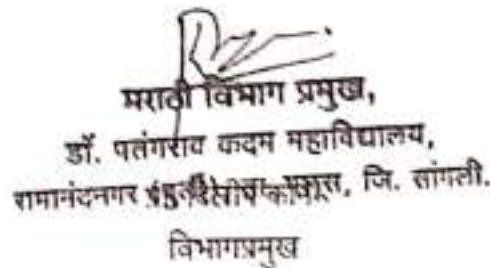 मराठी विभाग प्रमुख,
डॉ. पतंगराव कदम महाविद्यालय,
रामानंदनगर जि. सांगली.
विभागप्रमुख